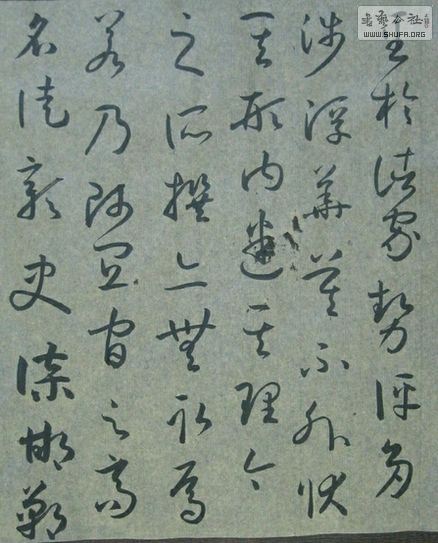 至於諸家勢評多
涉浮華莫不外狀
其形内迷其理今
之所撰亦無取焉
若乃師宜官之高
名徒彰史牒邯鄲
書藝公社
WWW.SHUFA.ORG